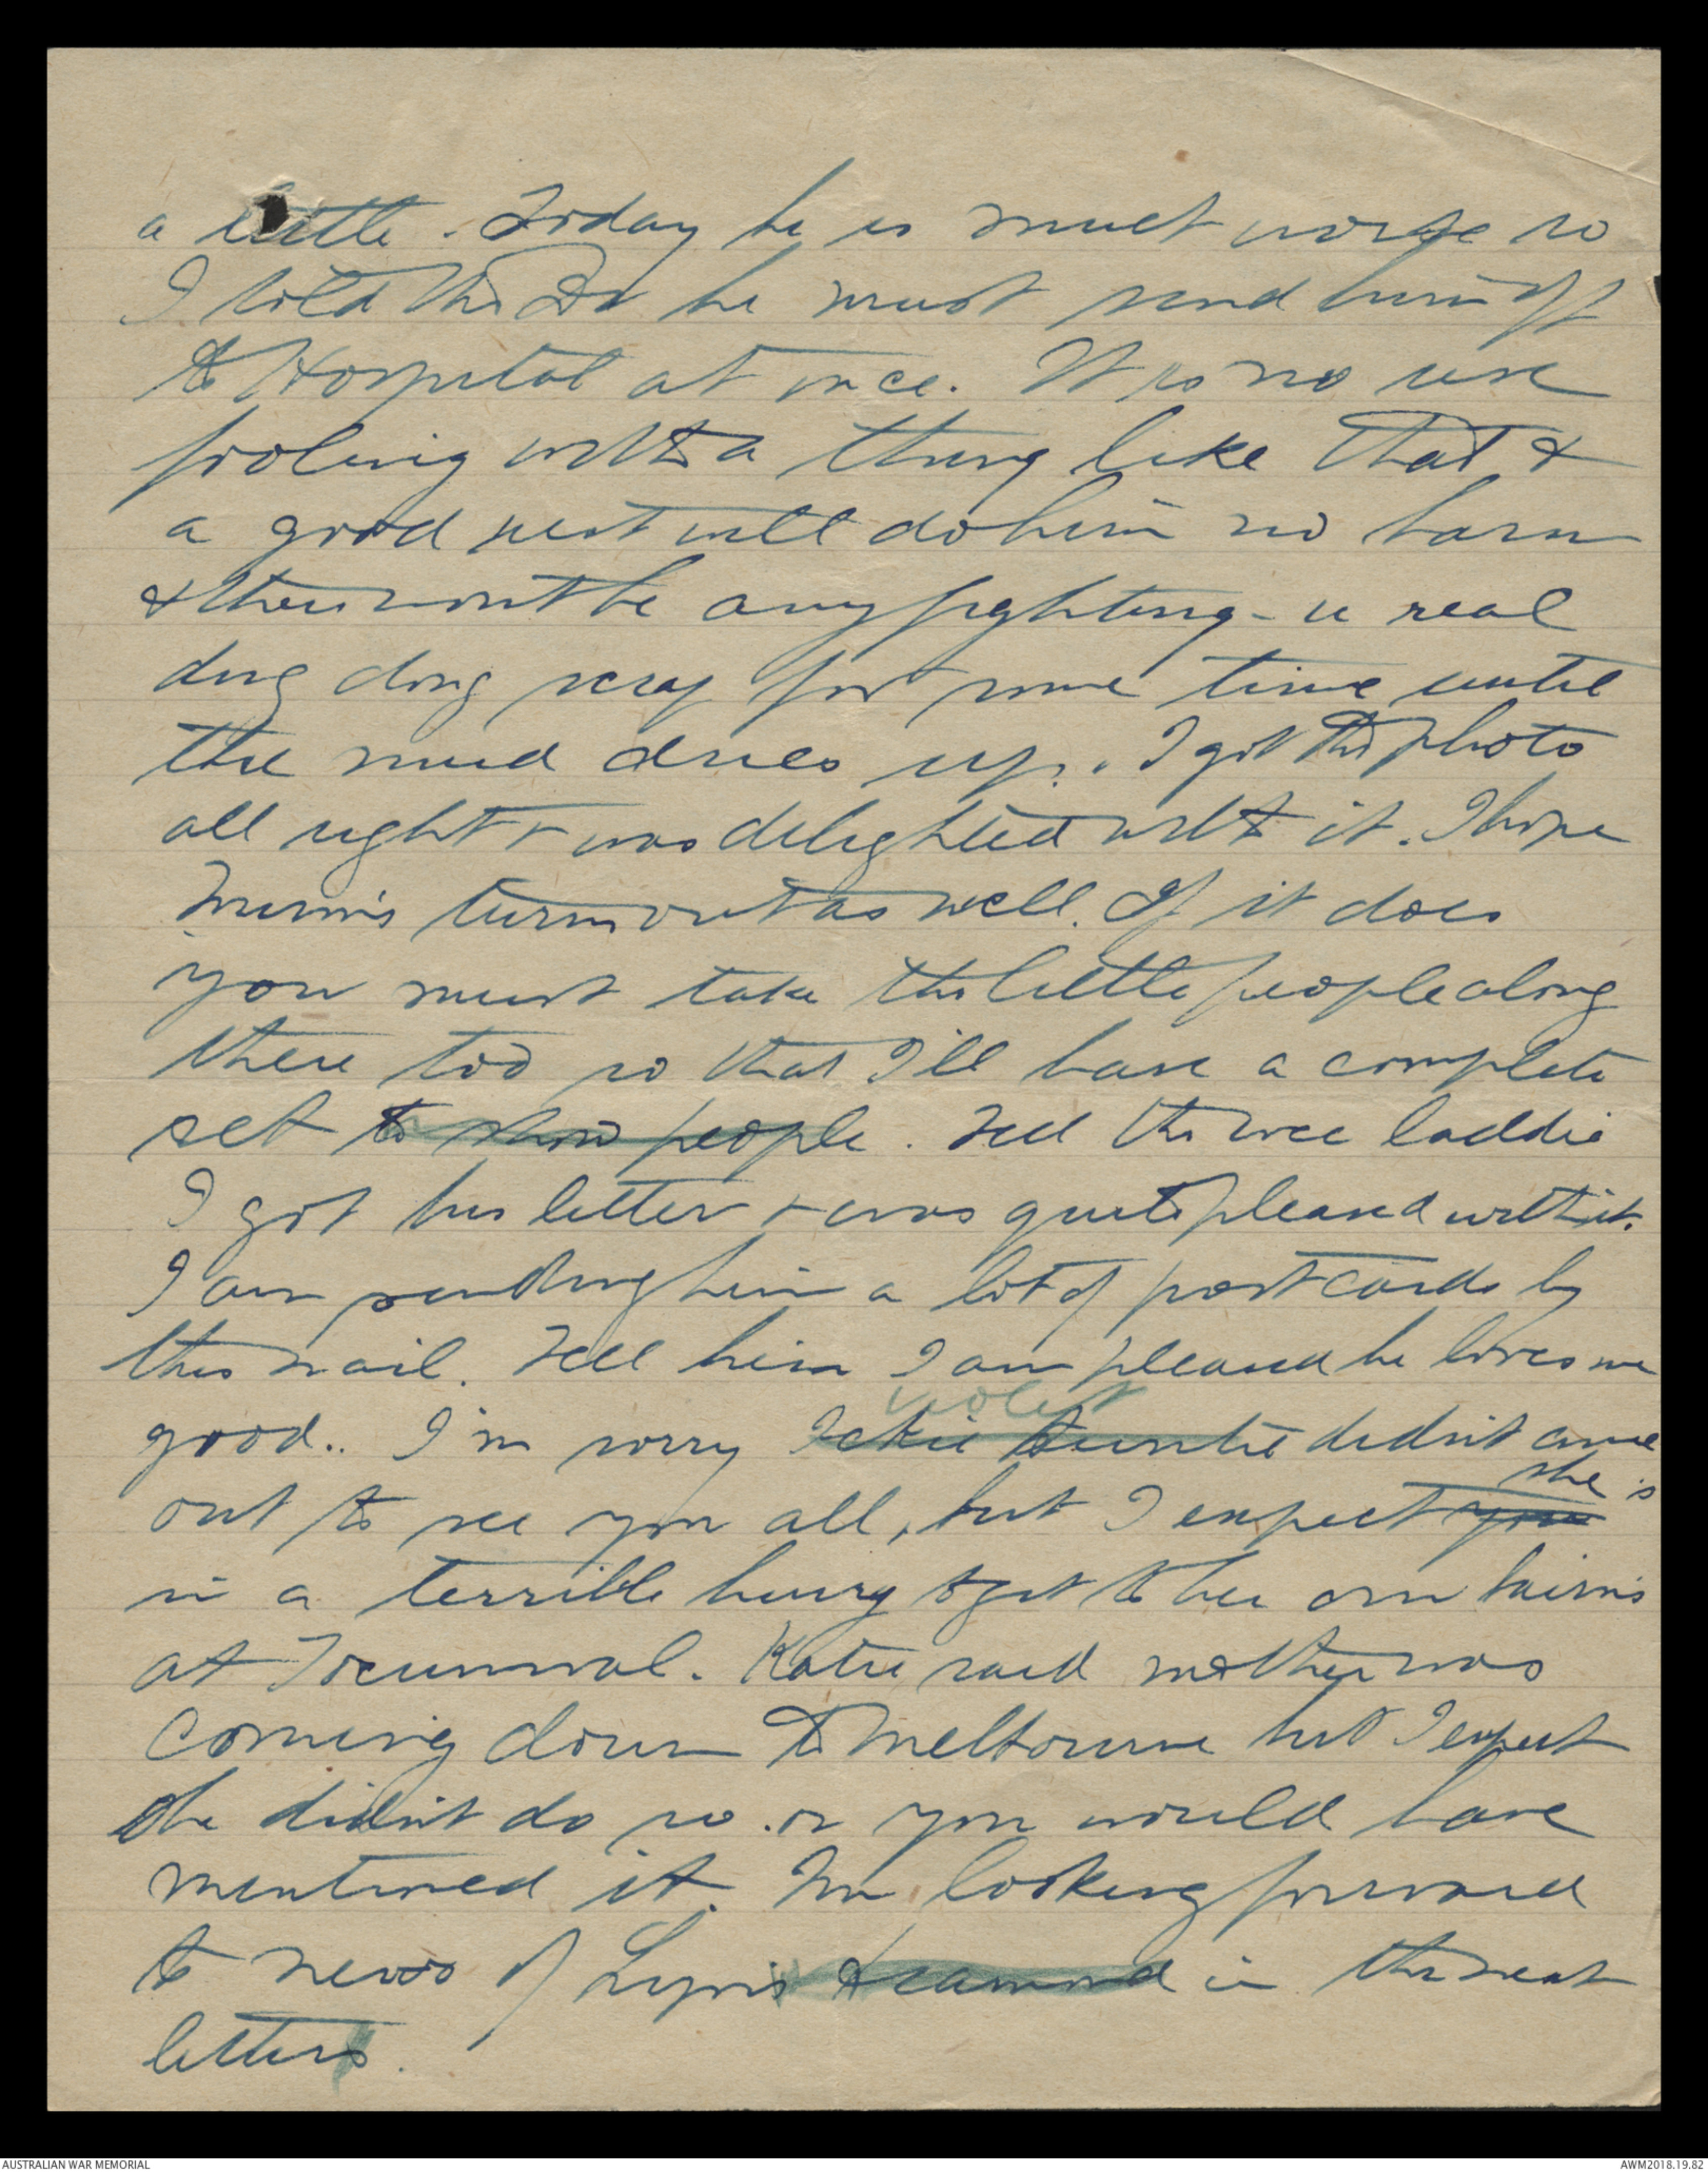 a little. Today he is much worse so
I told the Dr he must send him off
to Hospital at once. It is no use
fooling with a thing like that &
a good rest will do him no harm
& there wont be any fighting - ie real
ding dong scrap for some time until
the mud dries up. I got the photo
all right & was delighted with it. I hope
Mum's turns out as well. If it does
you must take the little people along
there too so that I'll have a complete
set to show people. Tell the wee laddie
I got his letter & was quite pleased with it.
I am sending him a lot of postcards by
this mail. Tell him I am pleased he loves me
violet
good.. I'm sorry Ickie Auntie didn't come
she is
out to see you all, but I expect you
in a terrible hurry to get to her own bairns
at Tocumwal. Katie said mother was
coming down to Melbourne but I expect
she didn't do so or you would have
mentioned it. I'm looking forward
to news of in the next
letters.
AUSTRALIAN WAR MEMORIAL
AWM2018.19.82